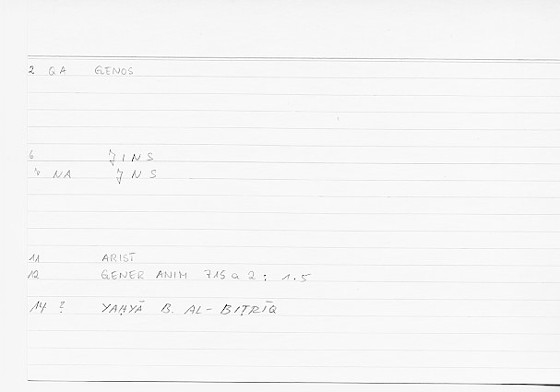 2 GA GENOS
6 ǦINS
7 NA ǦNS
11 ARIST
12 GENER ANIM 715 a 2 : 1.5
14 ? YAḤYĀ B. AL-BIṬRĪQ